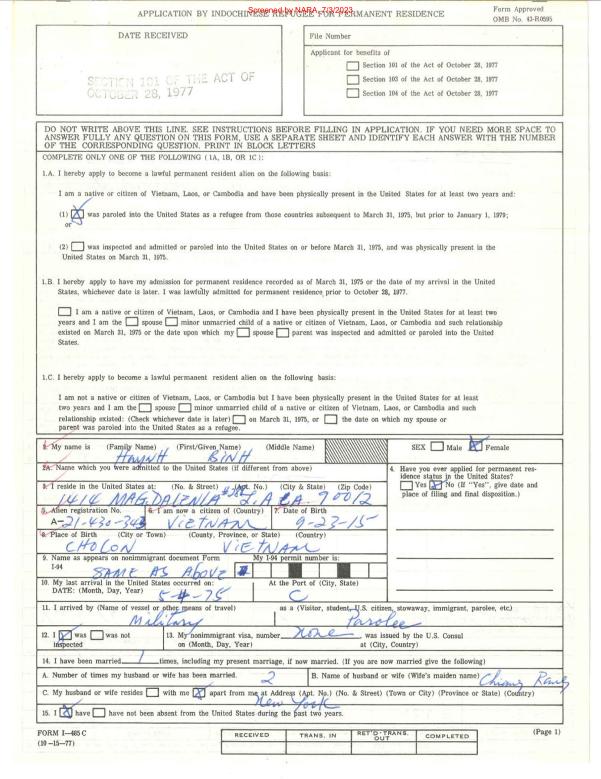 Screened by NARA, 7/3/2023
APPLICATION BY INDOCHINESE REFUGEE FOR PERMANENT RESIDENCE
Form Approved
OMB No. 43-R0595
DATE RECEIVED
SECTION 101 OF THE ACT OF
OCTOBER 28, 1977
File Number
Applicant for benefits of
Section 101 of the Act of October 28, 1977
Section 103 of the Act of October 28, 1977
Section 104 of the Act of October 28, 1977
DO NOT WRITE ABOVE THIS LINE. SEE INSTRUCTIONS BEFORE FILLING IN APPLICATION. IF YOU NEED MORE SPACE TO
ANSWER FULLY ANY QUESTION ON THIS FORM, USE A SEPARATE SHEET AND IDENTIFY EACH ANSWER WITH THE NUMBER
OF THE CORRESPONDING QUESTION. PRINT IN BLOCK LETTERS
COMPLETE ONLY ONE OF THE FOLLOWING (1A, 1B, OR 1C):
1.A. I hereby apply to become a lawful permanent resident alien on the following basis:
I am a native or citizen of Vietnam, Laos, or Cambodia and have been physically present in the United States for at least two years and:
(1) X was paroled into the United States as a refugee from those countries subsequent to March 31, 1975, but prior to January 1, 1979;
or
(2) was inspected and admitted or paroled into the United States on or before March 31, 1975, and was physically present in the
United States on March 31, 1975.
1.B. I hereby apply to have my admission for permanent residence recorded as of March 31, 1975 or the date of my arrival in the United
States, whichever date is later. I was lawfully admitted for permanent residence prior to October 28, 1977.
I am a native or citizen of Vietnam, Laos, or Cambodia and I have been physically present in the United States for at least two
years and I am the spouse minor unmarried child of a native or citizen of Vietnam, Laos, or Cambodia and such relationship
existed on March 31, 1975 or the date upon which my spouse parent was inspected and admitted or paroled into the United
States.
1.C. I hereby apply to become a lawful permanent resident alien on the following basis:
I am not a native or citizen of Vietnam, Laos, or Cambodia but I have been physically present in the United States for at least
two years and I am the spouse minor unmarried child of a native or citizen of Vietnam, Laos, or Cambodia and such
relationship existed: (Check whichever date is later) on March 31, 1975, or the date on which my spouse or
parent was paroled into the United States as a refugee.
2. My name is (Family Name) (First/Given Name) (Middle Name)
HUYNH BINH
SEX Male X Female
2A. Name which you were admitted to the United States (if different from above)
4. Have you ever applied for permanent res-
idence status in the United States?
Yes X No (If "Yes", give date and
place of filing and final disposition.)
3. I reside in the United States at: (No. & Street) (Apt. No.) (City & State) (Zip Code)
L.A CA. 90012
5. Alien registration No. 6. I am now a citizen of (Country) 7. Date of Birth
A-21-430-343 VIETNAM 9-23-15
8. Place of Birth (City or Town) (County, Province, or State) (Country)
CHOLON VIETNAM
9. Name as appears on nonimmigrant document Form My I-94 permit number is:
I-94 SAME AS ABOVE
10. My last arrival in the United States occurred on: At the Port of (City, State)
DATE: (Month, Day, Year) 5-4-75 C
11. I arrived by (Name of vessel or other means of travel) as a (Visitor, student, U.S. citizen, stowaway, immigrant, parolee, etc.)
Military Parolee
12. I X was was not 13. My nonimmigrant visa, number none was issued by the U.S. Consul
inspected on (Month, Day, Year) at (City, Country)
14. I have been married 1 times, including my present marriage, if now married. (If you are now married give the following)
A. Number of times my husband or wife has been married. 2 B. Name of husband or wife (Wife's maiden name)
C. My husband or wife resides with me X apart from me at Address (Apt. No.) (No. & Street) (Town or City) (Province or State) (Country)
New York
15. I X have have not been absent from the United States during the past two years.
FORM I-485 C
(10-15-77)
RECEIVED TRANS. IN RET'D-TRANS. OUT COMPLETED
(Page 1)